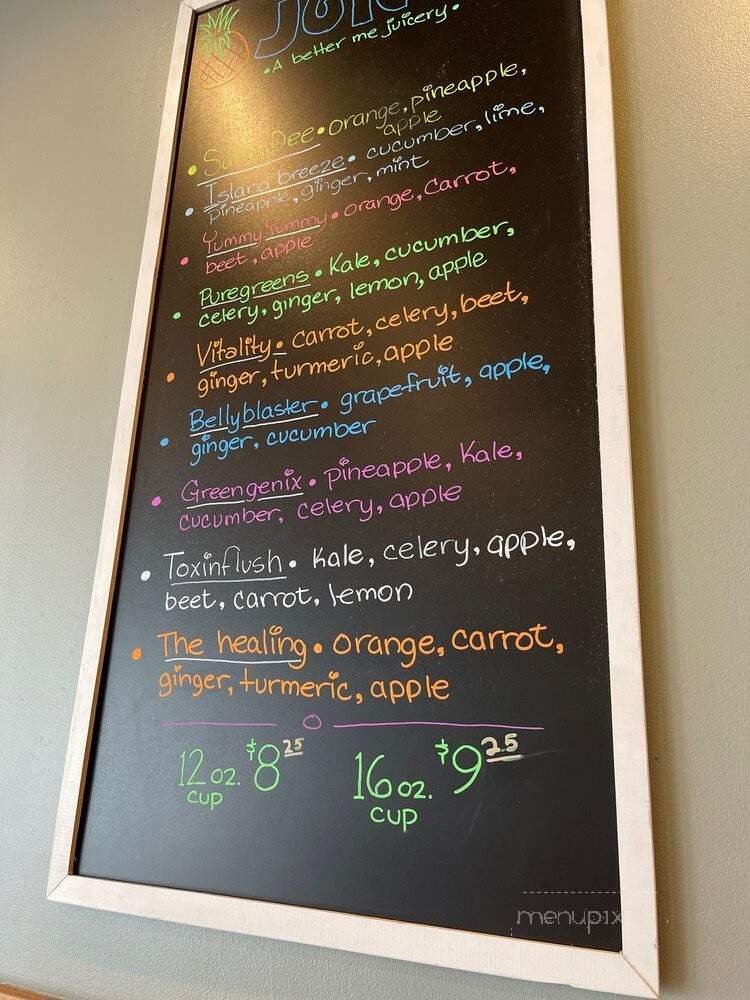 • A better me juicery •
• Sunny Dee • orange, pineapple,
apple
• Island breeze • cucumber, lime,
pineapple, ginger, mint
• Yummy Tummy • orange, carrot,
beet, apple
• Puregreens • Kale, cucumber,
celery, ginger, lemon, apple
• Vitality • carrot, celery, beet,
ginger, turmeric, apple
• Bellyblaster • grapefruit, apple,
ginger, cucumber
• Greengenix • pineapple, Kale,
cucumber, celery, apple
• Toxinflush • kale, celery, apple,
beet, carrot, lemon
• The healing • orange, carrot,
ginger, turmeric, apple
12 oz. $8 25 16 oz. $9 25
cup cup
menupix